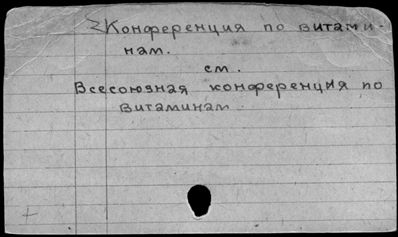 Конференция по витами-
нам.
см.
Всесоюзная конференция по
витаминам